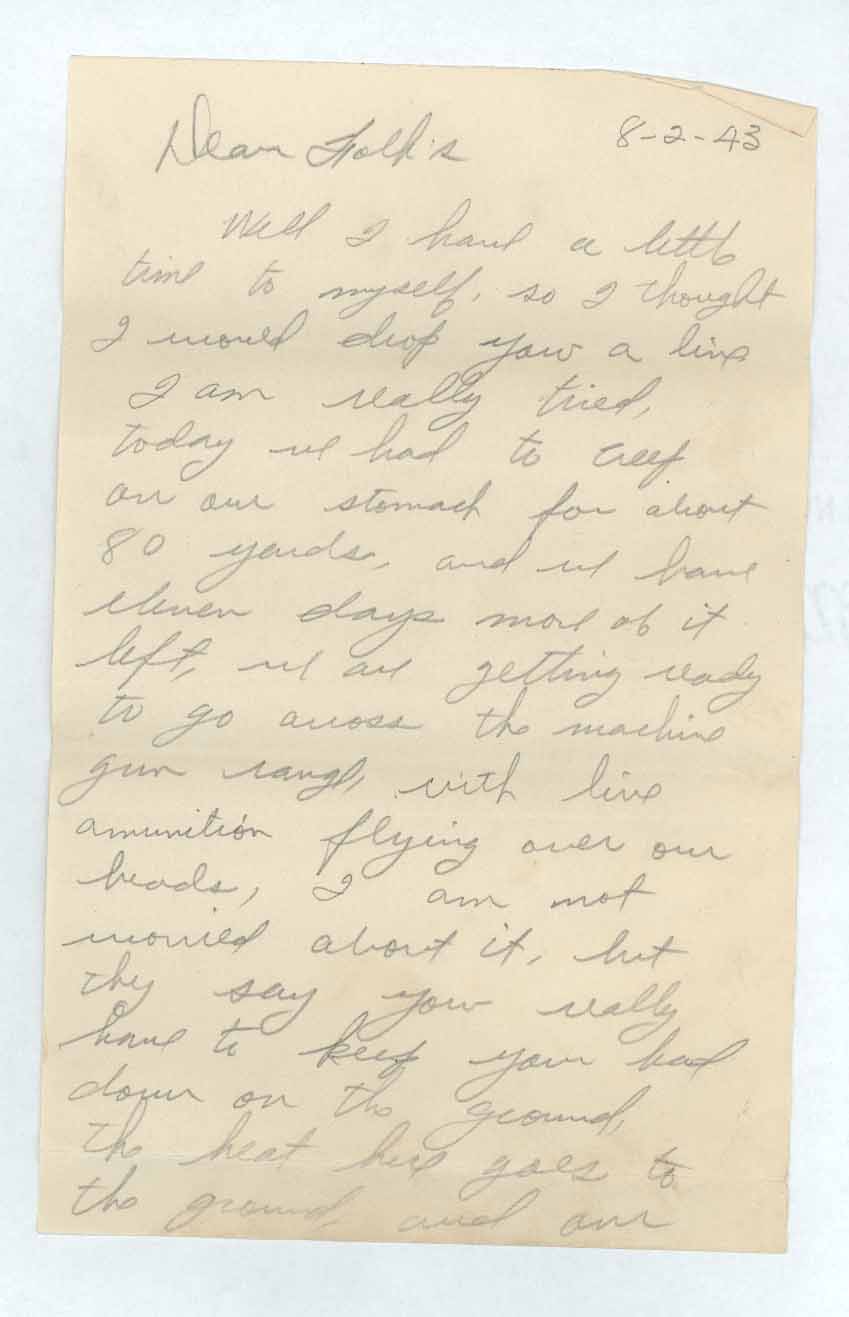 8-2-43
Dear Folk's
Well I have a little
time to myself, so I thought
I would drop you a line
I am really tried,
today we had to creep
on our stomach for about
80 yards, and we have
eleven days more of it
left, we are getting ready
to go across the machine
gun range, with live
amunition flying over our
heads, I am not
worried about it, but
they say you really
have to keep your head
down on the ground,
the heat here goes to
the ground, and our